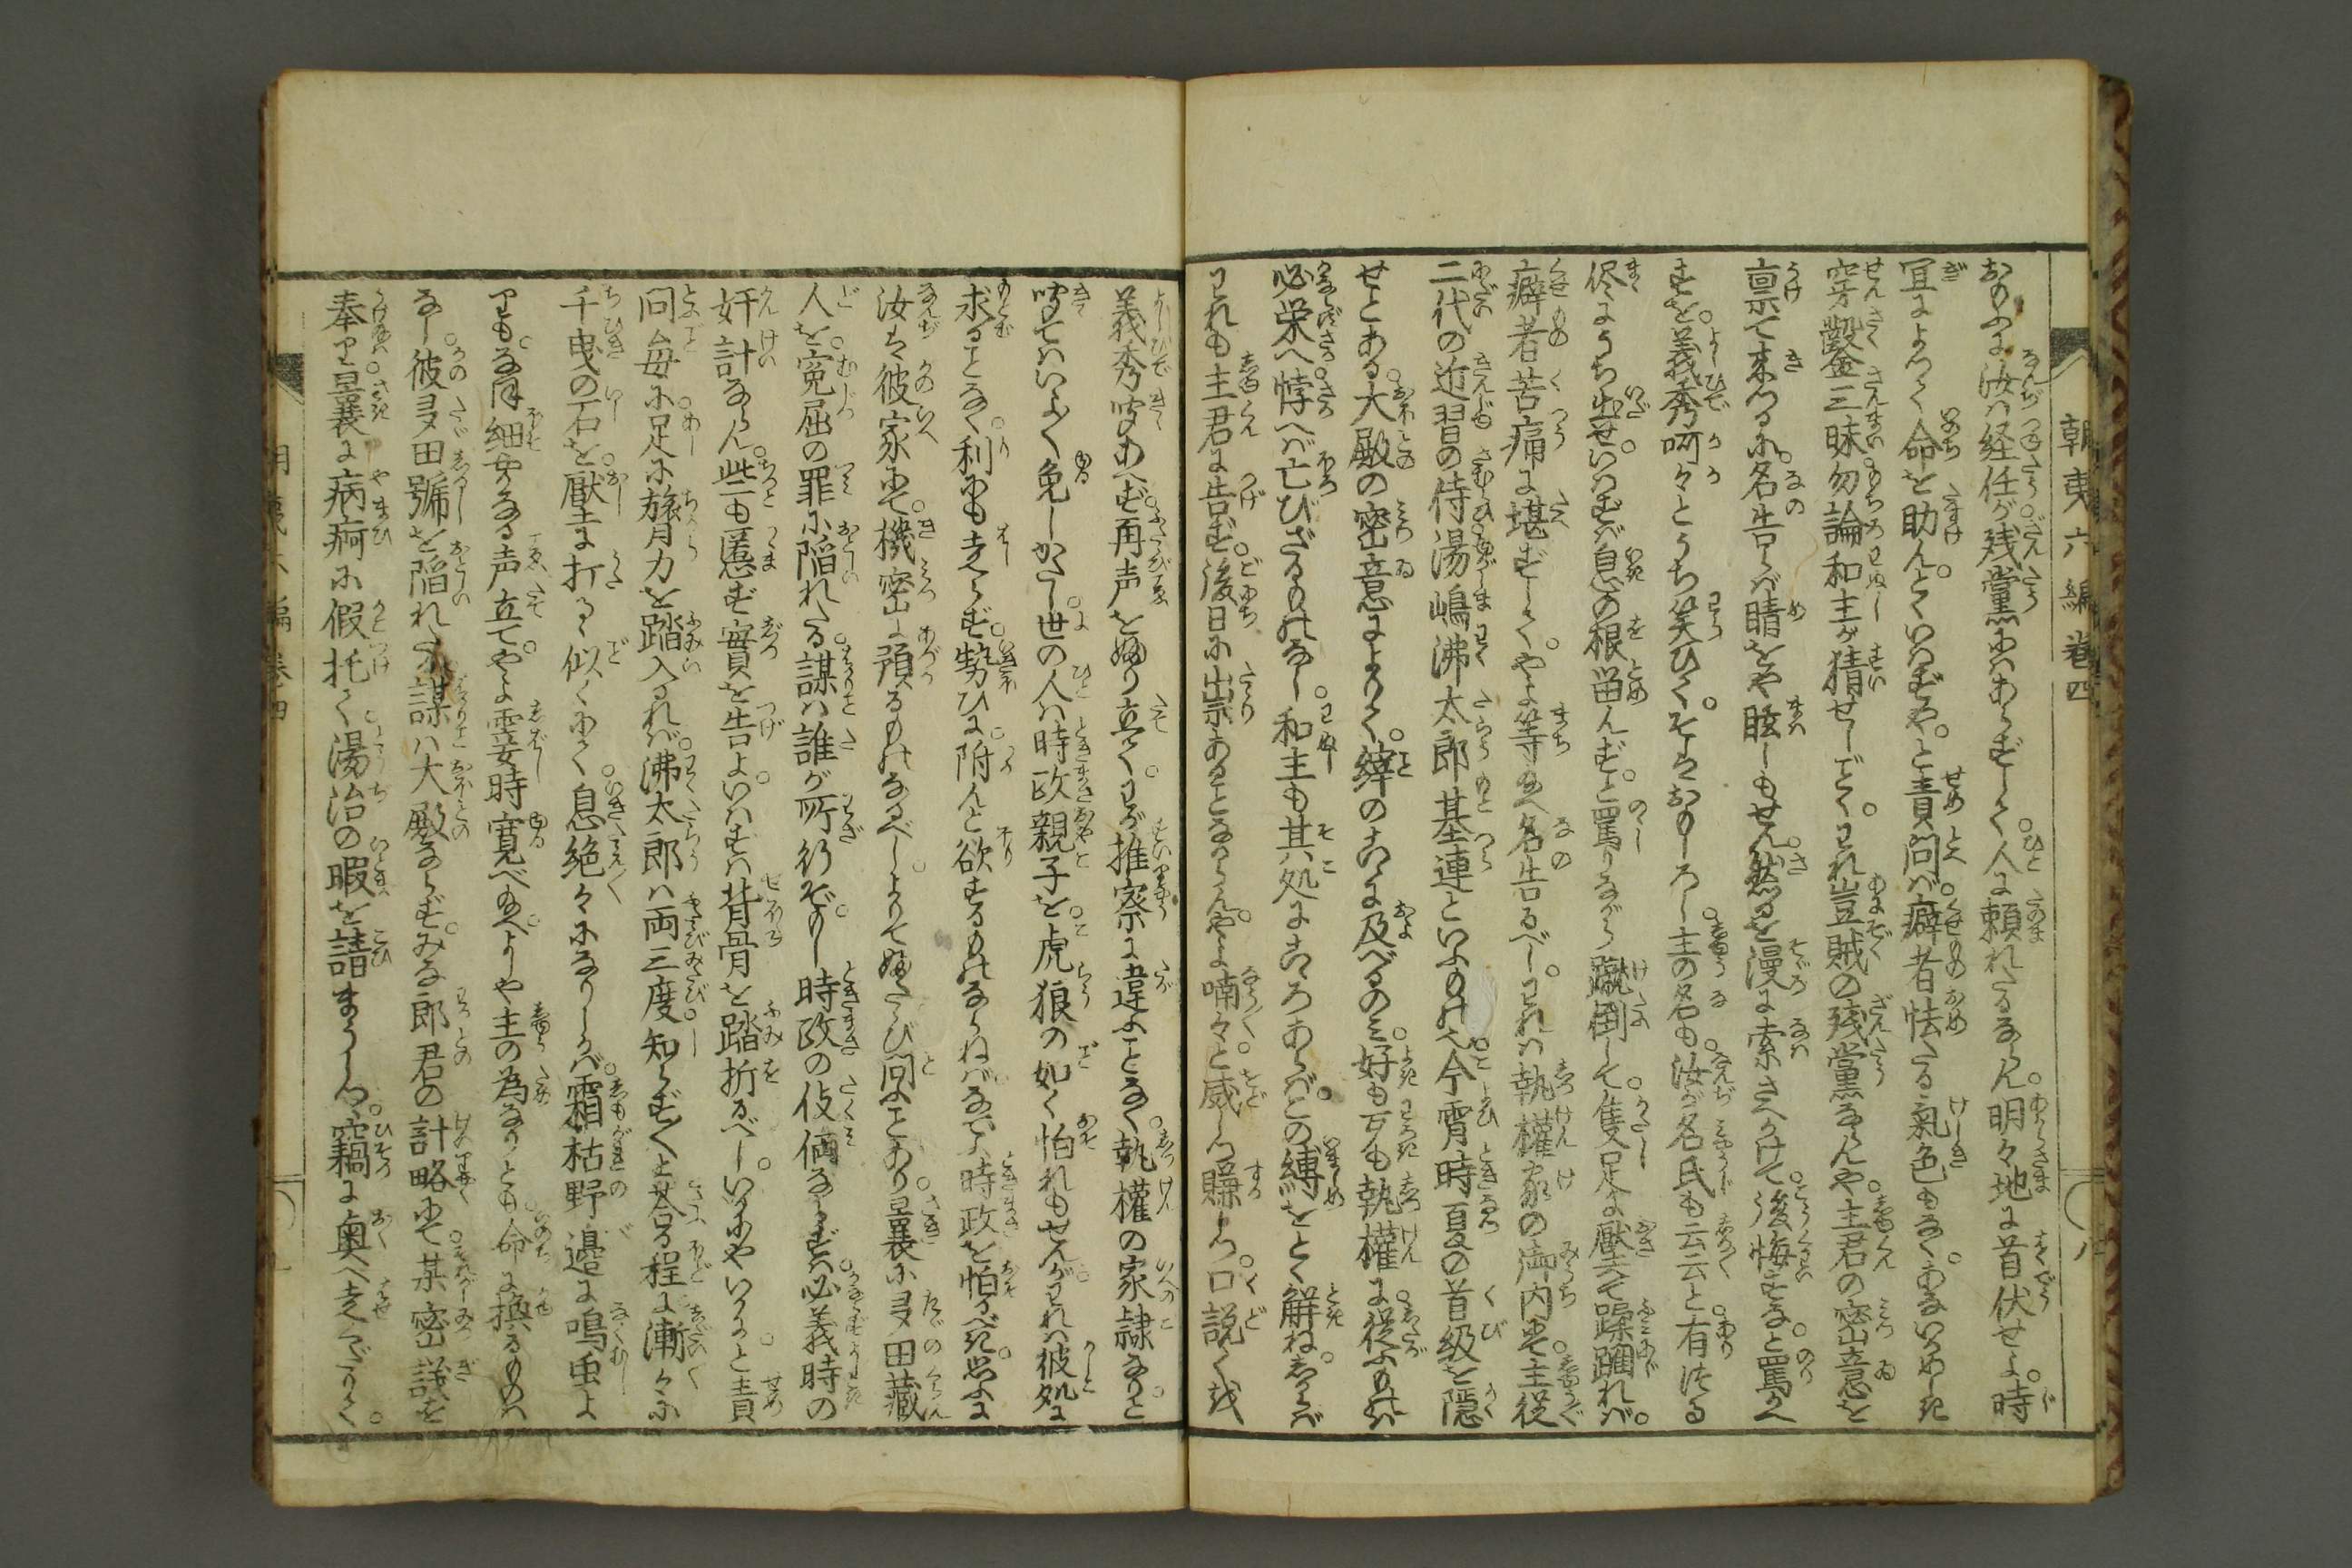 朝夷六編巻四
おのふに汝は経任が残黨にはあらずして。人に頼れたるならん。明々地に首伏せよ。時
宜によつて命を助んといはずや。と責問ば癖者怯たる氣色もなく。あないかめしき
穿鑿三昧勿論和主が猜せしごとく。われ豈賊の残黨ならんや。主君の密意を
禀て来つるに。名告らば睛をや眩しもせん。然るを漫に索さへかけて。後悔すなと罵かへ
すを。義秀呵々とうち笑ひて。そはおもしろし。主の名も。汝が名氏も云云と。有つる
侭にうち出せ。いはずは息の根留んず。と罵りながら蹴倒して。隻足に壓て蹂躙れば。
癖者苦痛に堪ずして。やよ等給へ名告るべし。われは執權家の御内にて。主従
二代の近習の侍湯嶋沸太郎基連といふもの也。今宵時夏の首級を隠
せとある。大殿の密意によりて。縡のこゝに及べるのみ。好も歹も執權に。従ふものは
必栄へ。悖へば亡びざるものなし。和主も其処にこゝろあらば。この縛をとく解ね。しからば
われも主君に告ず。後日に祟あることなからんや。よ喃々と威しつ賺しつ。口説て
義秀聞あへず。再声をふり立て。わが推察に違ふことなく。執權の家隷なりと
聞てはいよ〳〵免しがたし。世の人は時政親子を。虎狼の如く怕れもせんが。われは彼処に
求ることなく。利にも走らず。勢ひに。附んと欲するものならねば。なでふ時政を怕るべき。思ふに
汝は彼家にて。機密に預るものなるべし。よりて再び問ふことあり。曩に多田蔵
人を。寃屈の罪に陥れたる。謀は誰が所行ぞや。時政の伎倆ならずは。必義時の
奸計ならん。些も匿まず實を告よ。いはずは背骨を踏折るべし。いかにやいかに。と責
問毎に。足に膂力を踏入るれば。沸太郎は両三度。知らず〳〵と答る程に。漸々に
千曳の石を。壓に打るゝ似くにて。息絶々になりしかば。霜枯野邉に鳴虫よ
りも。なほ細やかなる声立て。やよ霎時寛べ給へ。よしや主の為なりとも。命に換るものは
なし。彼多田號を陥れたる。謀は大殿ならず。みな郎君の計略にて。某密議を
奉り。曩に病痾に假托て。湯治の暇を請まうしつ。竊に奥へ走くだりて。